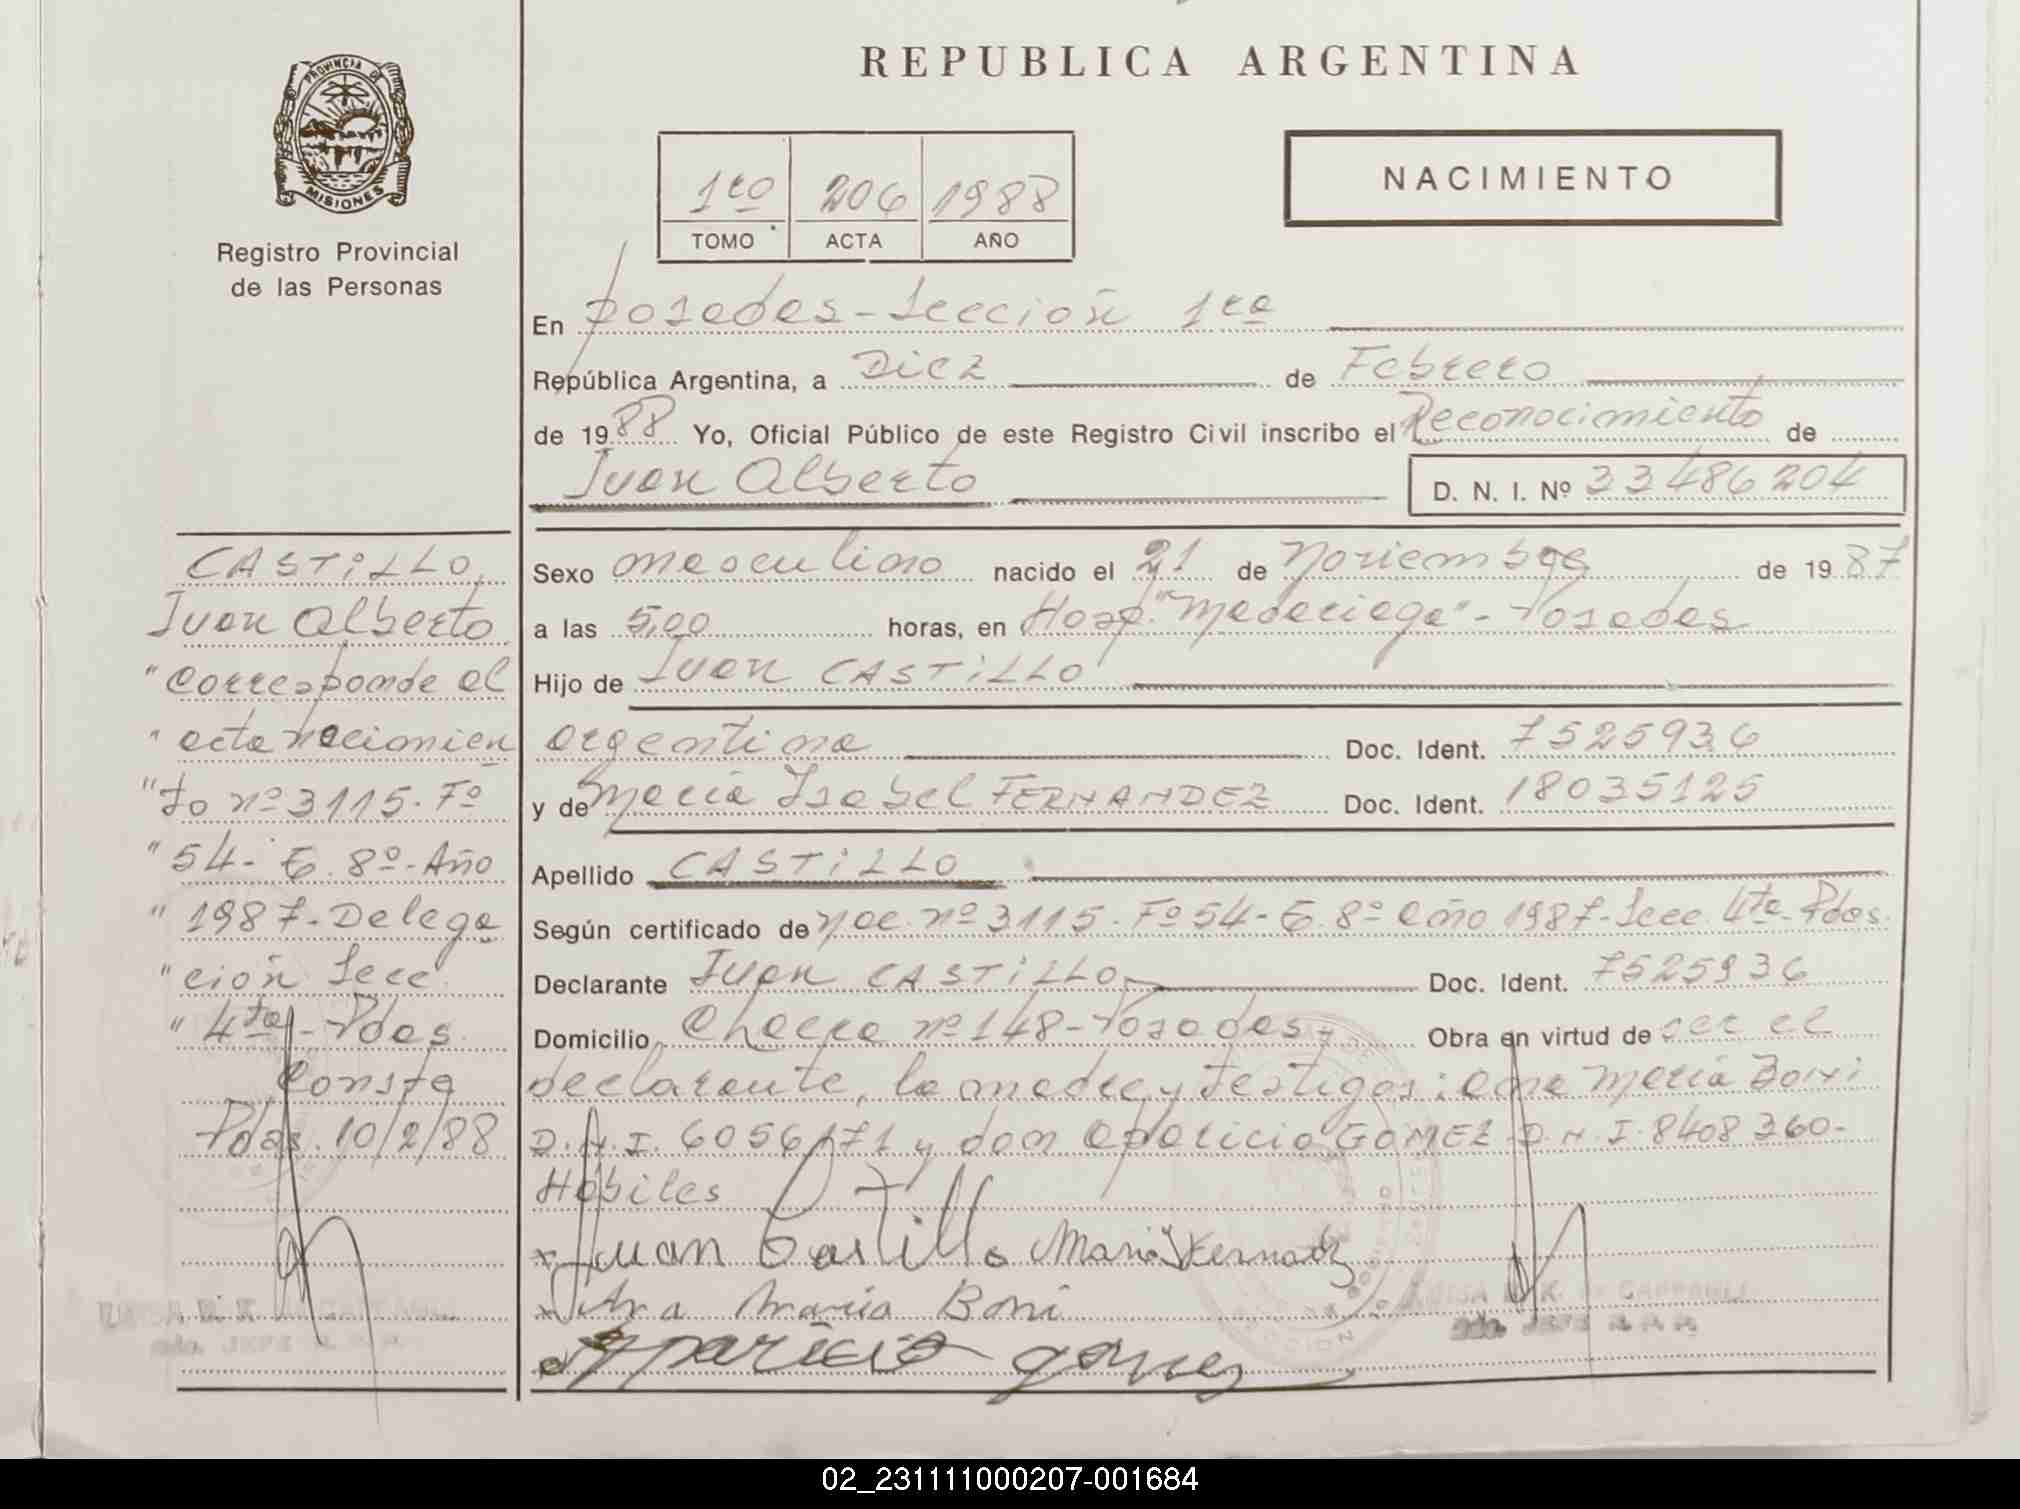 REPUBLICA ARGENTINA
PROVINCIA DE
MISIONES
Registro Provincial
de las Personas
1ro 206 1988
TOMO ACTA AÑO
NACIMIENTO
En Posadas - Sección 1ra
República Argentina, a Diez de Febrero
de 1988 Yo, Oficial Público de este Registro Civil inscribo el Reconocimiento de
Juan Alberto D. N. I. Nº 33486204
Sexo masculino nacido el 21 de Noviembre de 1987
a las 5,00 horas, en Hosp. "Madariaga" - Posadas
Hijo de Juan CASTILLO
argentina Doc. Ident. 7525936
y de María Isabel FERNANDEZ Doc. Ident. 18035125
Apellido CASTILLO
Según certificado de nac. nº 3115. Fº 54 - T. 8º año 1987 - Secc. 4ta - Pdas.
Declarante Juan CASTILLO Doc. Ident. 7525936
Domicilio Chacra nº 148 - Posadas - Obra en virtud de ser el
declarante, la madre y testigos: Ana María Boni
D.N.I. 6056171 y don Aparicio GOMEZ D.N.I. 8408360 -
Hábiles
x Juan Castillo María Y Fernandez
x Ana Maria Boni
Aparicio gomez
CASTILLO,
Juan Alberto.
"Corresponde al
"acta nacimien
"to nº 3115. Fº
"54 - T. 8º - Año
"1987 - Delega
"ción Secc.
"4ta - Pdas.
Consta
Pdas. 10/2/88
02_231111000207-001684